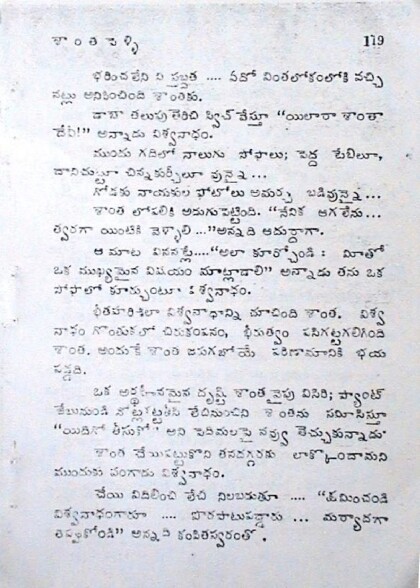 శాంత పెళ్ళి 119
భరించలేని నిశ్శబ్దత .... ఏదో వింతలోకంలోకి వచ్చి
నట్లు అనిపించింది శాంతకు.
డాబా తలుపుతెరిచి స్విచ్ వేస్తూ “యిలారా శాంతా
దేవీ!” అన్నాడు విశ్వనాధం.
ముందు గదిలో నాలుగు సోఫాలు; పెద్ద టేబిలూ,
దానిచుట్టూ చిన్నకుర్చీలూ వున్నై...
గోడకు నాయకుల ఫోటోలు అమర్చ బడివున్నై...
శాంత లోపలికి అడుగుపెట్టింది. “నేనిక ఆగలేను...
త్వరగా యింటికి వెళ్ళాలి....” అన్నది ఆదుర్దాగా.
ఆ మాట విననట్లే....“అలా కూర్చోండి : మీతో
ఒక ముఖ్యమైన విషయం మాట్లాడాలి” అన్నాడు తను ఒక
సోఫాలో కూర్చుంటూ విశ్వనాధం.
భీతహరిణిలా విశ్వనాధాన్ని చూచింది శాంత. విశ్వ
నాధం గొంతుకలో చిరుకంపనం, భీరుత్వం పసిగట్టగలిగింది
శాంత. అందుకే శాంత జరుగబోయే పరిణామానికి భయ
పడ్డది.
ఒక అర్థహీనమైన దృష్టి శాంత వైపు విసిరి; ప్యాంట్
జేబునుండి నోట్లకట్టతీసి లేచినుంచుని శాంతను సమీపిస్తూ
“యిదిగో తీసుకో” అని పెదిమలపై నవ్వు తెచ్చుకున్నాడు
శాంత చేయిపట్టుకొని తనదగ్గరకు లాక్కొందామని
ముందుకు వంగాడు విశ్వనాధం.
చేయి విదిలించి లేచి నిలబడుతూ .... “క్షమించండి
విశ్వనాధంగారూ .... పొరపాటుపడ్డారు ... మర్యాదగా
తప్పుకోండి” అన్నది కంపితస్వరంతో.